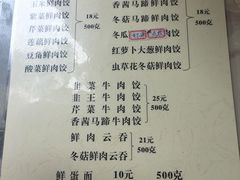 玉米鲜肉饺
紫菜鲜肉饺
芹菜鲜肉饺
莲藕鲜肉饺
豆角鲜肉饺
酸菜鲜肉饺
18元
500克
香茜马蹄鲜肉饺
冬菇马蹄鲜肉饺
冬瓜
肉饺
红萝卜大葱鲜肉饺
虫草花冬菇鲜肉饺
18元
500克
韭菜牛肉饺
韭王牛肉饺
芹菜牛肉饺
香茜马蹄牛肉饺
25元
500克
鲜肉云吞
冬菇鲜肉云吞
21元
500克
鲜蛋面 10元 500克